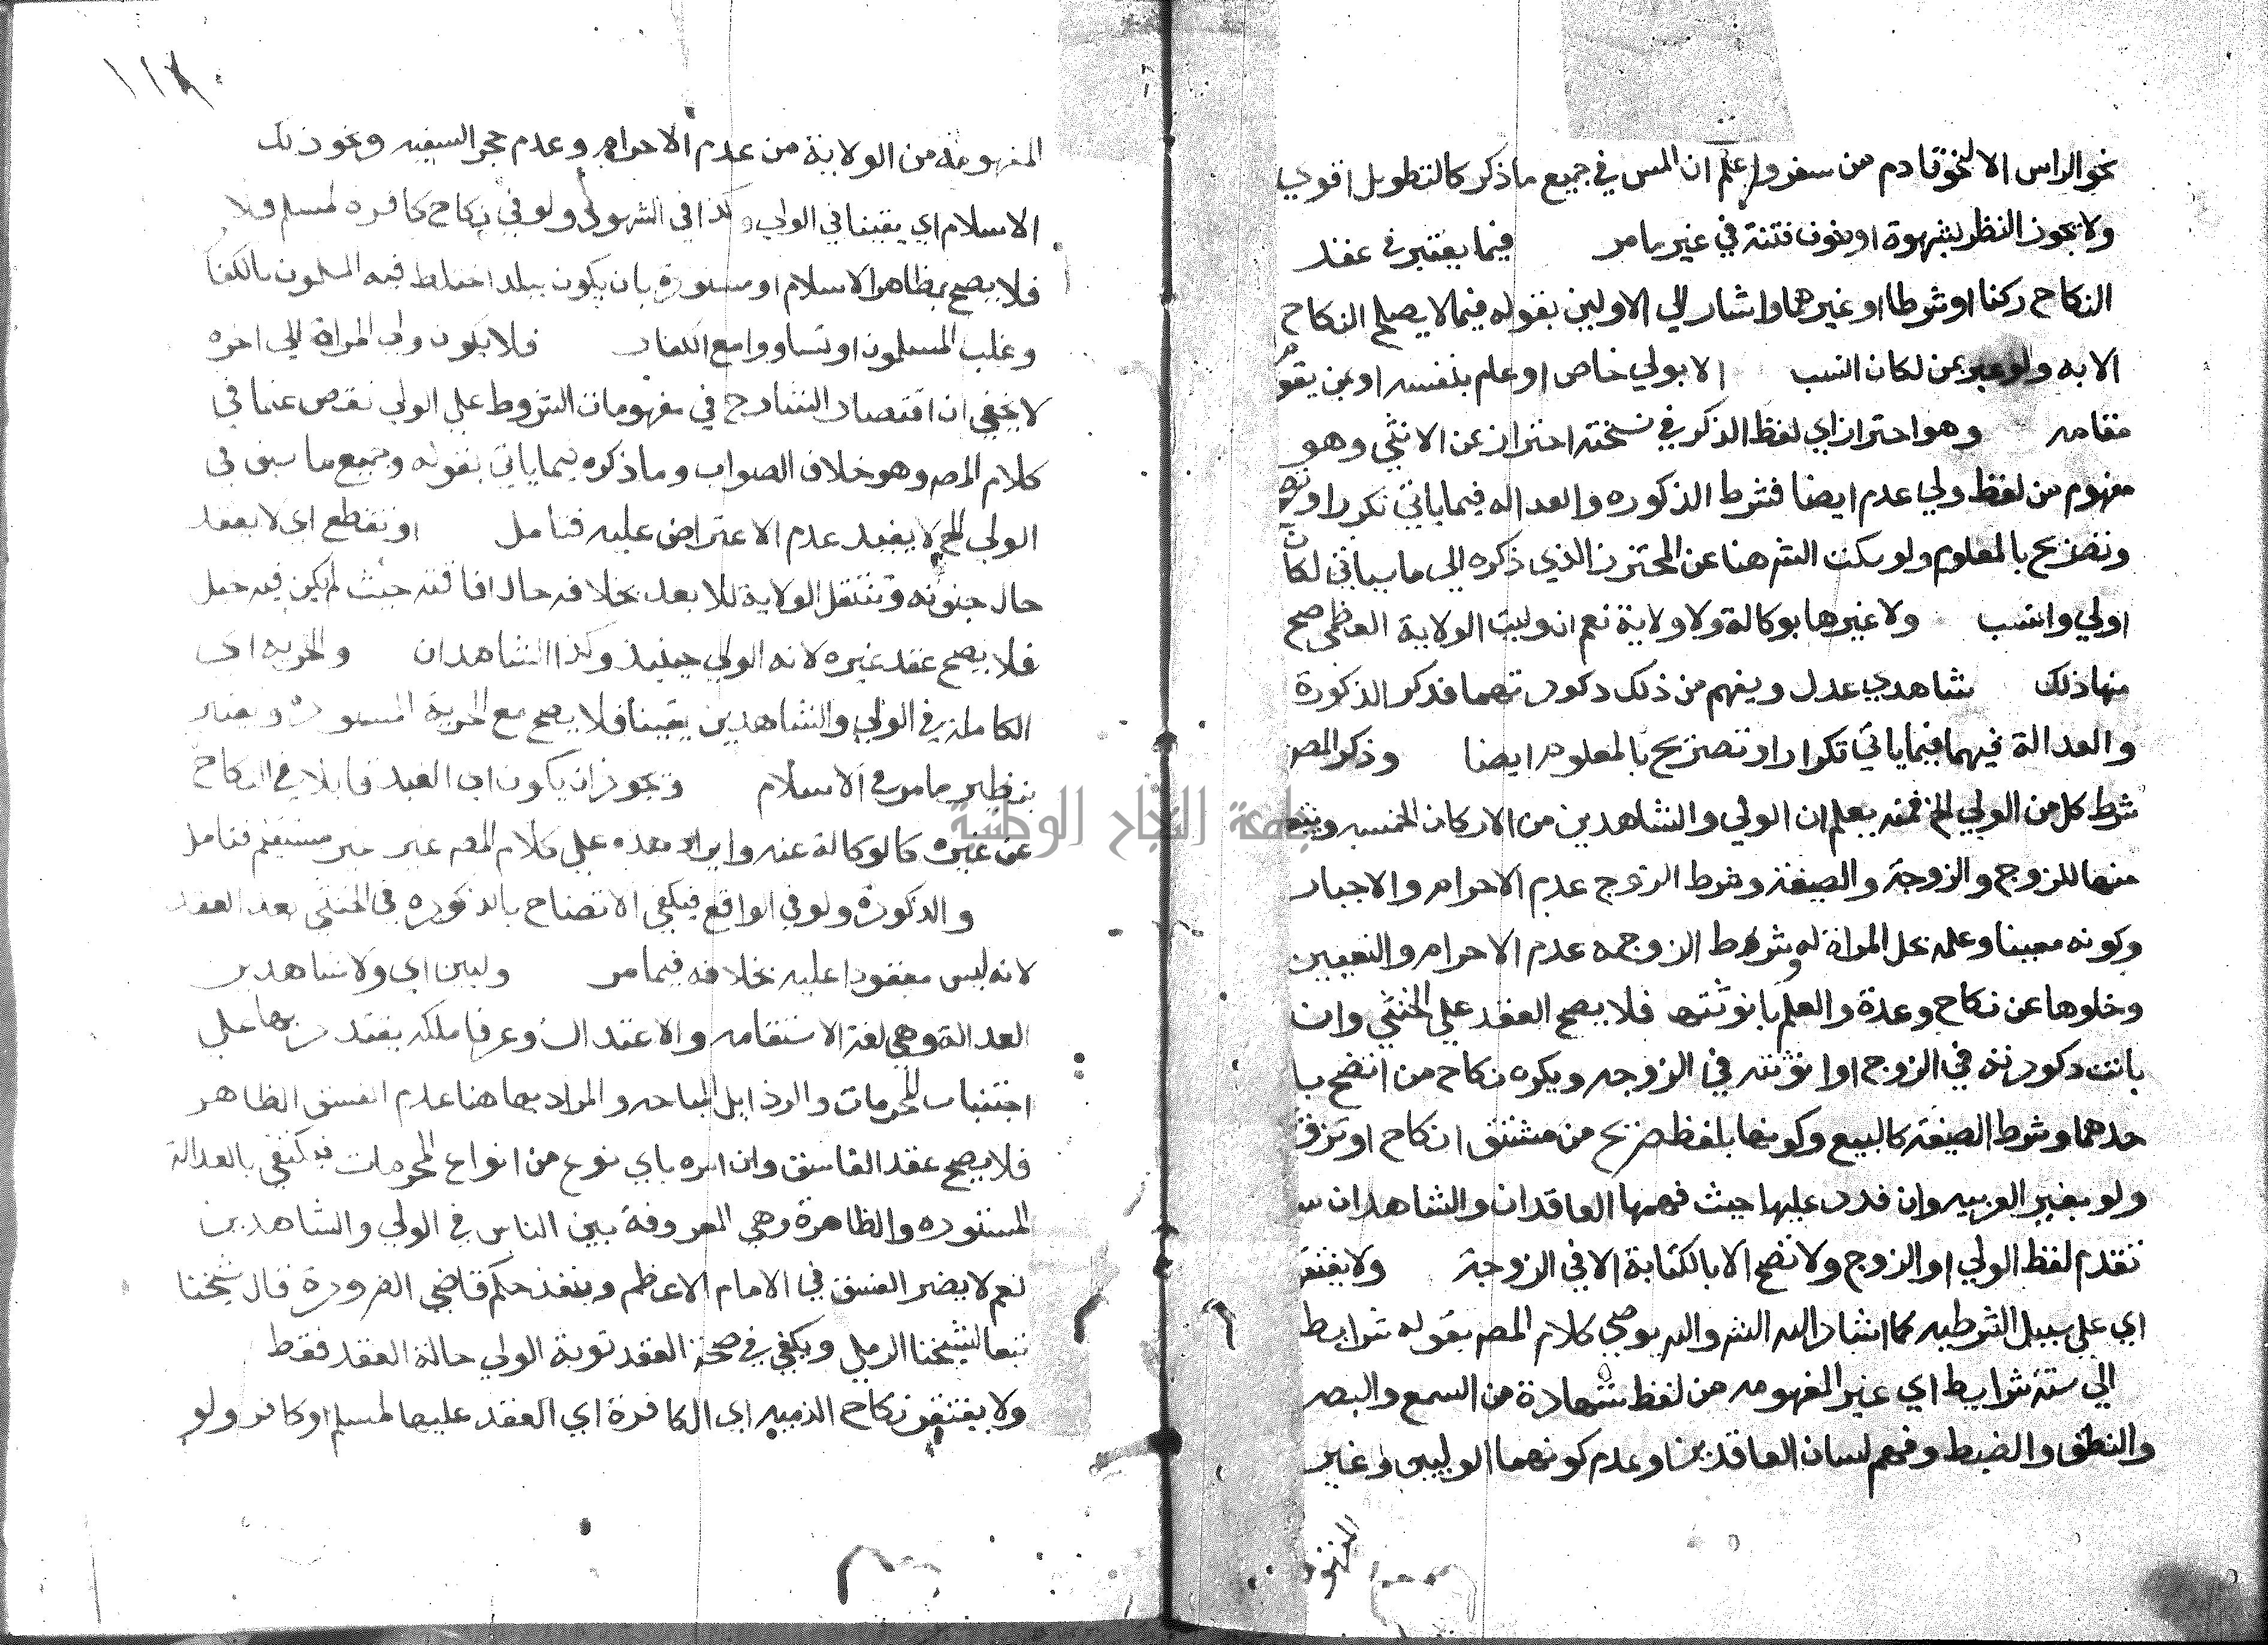 نحو الراس الا لنحو قادم من سفر واعلم ان المس في جميع ما ذكر كالنظر بل اقوي
ولا يجوز النظر بشهوة او خوف فتنة في غير ما مر فيما يعتبر في عقد
النكاح ركنا او شرطا او غيرهما واشار الي الاولين بقوله فيما لا يصلح النكاح
الا به ولو عبر بمن لكان انسب الا بولي خاص او عام بنفسه او بمن يقوم
مقامه وهو احتراز اي لفظ الذكر في نسخته احتراز عن الانثي وهو
مفهوم من لفظ ولي عدم ايضا فشرط الذكوره والعداله فيما ياتي تكرار او
وتصريح بالمعلوم ولو سكت الش هنا عن المحترز الذي ذكره الي ما سياتي لكان
اولي وانسب ولا غيرها بوكالة ولا ولاية نعم ان وليت الولاية العظمي صح
منها ذلك شاهدي عدل ويفهم من ذلك ذكورتهما فذكر الذكورة
والعدالة فيهما فيما ياتي تكرار او تصريح بالمعلوم ايضا وذكر المص
شرط كل من الولي الخ فمنه يعلم ان الولي والشاهدين من الاركان الخمسه
منها للزوج والزوجة والصيغة وشرط الزوج عدم الاحرام والاجبار
وكونه معينا وعلمه بحل المراة له وشرط الزوجه عدم الاحرام والتعيين
وخلوها عن نكاح وعدة والعلم بانوثتها فلا يصح العقد علي الخنثي وان
بانت ذكورته في الزوج او انوثته في الزوجه ويكره نكاح من اتضح با
حدهما وشرط الصيغة كالبيع وكونها بلفظ صريح من مشتق انكاح او تزو
ولو بغير العربيه وان قدر عليها حيث فهمها العاقدان والشاهدان
تقدم لفظ الولي او الزوج ولا تصح الا بالكتابة الا في الزوجة ولا يفتقر
اي علي سبيل الشرطيه كما اشار اليه الش واليه يومي كلام المص بقوله شرايط
الي ستة شرايط اي غير المفهومه من لفظ شهادة من السمع والبصر
والنطق والضبط وفهم لسان العاقدين وعدم كونهما الوليين وغير
المفهومة
١١٨
المفهومة من الولاية من عدم الاحرام وعدم حجر السفيه ونحو ذلك
الاسلام اي يقينا في الولي وكذا في الشهود ولو في نكاح كافره لمسلم فلا
فلا يصح بظاهر الاسلام او مستوره بان يكون ببلد اختلط فيه المسلمون بالكفار
وغلب المسلمون او تساووا مع الكفار فلا يكون ولي المراة الي اخره
لا يخفي ان اقتصار الشارح في مفهومات الشروط علي الولي نقص عما في
كلام المص وهو خلاف الصواب وما ذكره فيما ياتي بقوله وجميع ما سبق في
الولي الخ لا يفيد عدم الاعتراض عليه فتامل او تقطع اي لا يعقد
حال جنونه وتنتقل الولاية للابعد بخلافه حال افاقته حيث لم يكن فيه خبل
فلا يصح عقد غيره لانه الولي حينيذ وكذا الشاهدان والحريه اي
الكاملة في الولي والشاهدين يقينا فلا يصح مع الحرية المستوره ويعتبر
نظير ما مر في الاسلام ويجوز ان يكون اي العبد قابلا في النكاح
عن غيره كالوكالة عنه وايراد هذه علي كلام المص غير مستقيم فتامل
والذكورة ولو في الواقع فيكفي الاتضاح بالذكوره في الخنثي بعد العقد
لانه ليس معقودا عليه بخلافه فيما مر وليس اي ولا شاهدين
العدالة وهي لغة الاستقامه والاعتدال وعرفا ملكه يقتدر بها علي
اجتناب المحرمات والرذايل المباحه والمراد بها هنا عدم الفسق الظاهر
فلا يصح عقد الفاسق وان اسره باي نوع من انواع المحرمات فيكتفي بالعدالة
المستوره والظاهرة وهي المعروفة بين الناس في الولي والشاهدين
نعم لا يضر الفسق في الامام الاعظم وينفذ حكم قاضي الضرورة قال شيخنا
تبعا لشيخنا الرملي ويكفي في صحة العقد توبة الولي حالة العقد فقط
ولا يفتقر نكاح الذميه اي الكافرة اي العقد عليها لمسلم او كافر ولو
جامعة النجاح الوطنية